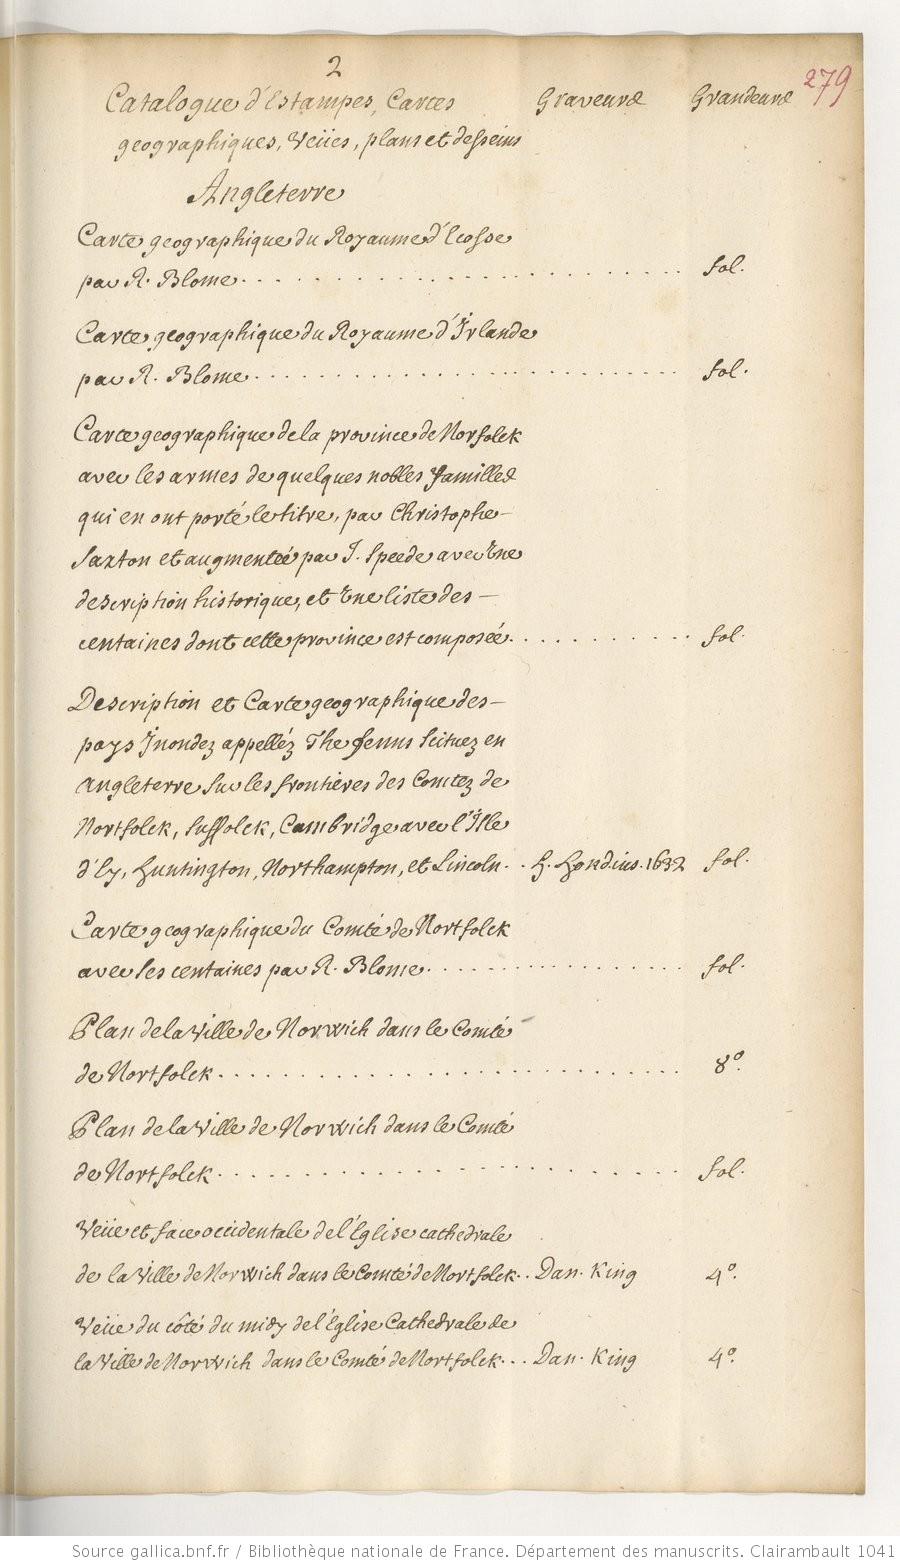 2
279
Catalogue d'Estampes, Cartes Graveurs Grandeurs
geographiques, Veües, plans et desseins
Angleterre
Carte geographique du Royaume d'Ecosse
par R. Blome. . . . . . . . . . . . . . . . . . . . . . . . fol.
Carte geographique du Royaume d'Irlande
par R. Blome . . . . . . . . . . . . . . . . . . . . . . . fol.
Carte geographique de la province de Norfolck
avec les armes de quelques nobles familles
qui en ont porté le titre, par Christophe
Saxton et augmentée par J. Speede avec Une
description historique, et Une liste des
centaines dont cette province est composée. . . . . . . . . . . fol.
Description et Carte geographique des
pays Inondez appelléz The fenns Scituez en
Angleterre Sur les frontieres des Comtez de
Nortfolck, Suffolck, Cambridge avec l'Isle
d'Ely, Huntington, Northampton, et Lincoln. . H. Hondius. 1632 fol.
Carte geographique du Comté de Nortfolck
avec les centaines par R. Blome. . . . . . . . . . . . . . . fol.
Plan de la Ville de Norwich dans le Comté
de Nortfolck . . . . . . . . . . . . . . . . . . . . . . . . . 8º.
Plan de la Ville de Norwich dans le Comté
de Nortfolck . . . . . . . . . . . . . . . . . . . . . . . . . fol.
Veüe et face occidentale de l'Eglise cathedrale
de la Ville de Norwich dans le Comté de Nortfolck. . Dan. King 4º.
Veüe du côté du midy de l'Eglise Cathedrale de
la Ville de Norwich dans le Comté de Nortfolck. . . Dan. King 4º.
Source gallica.bnf.fr / Bibliothèque nationale de France. Département des manuscrits. Clairambault 1041